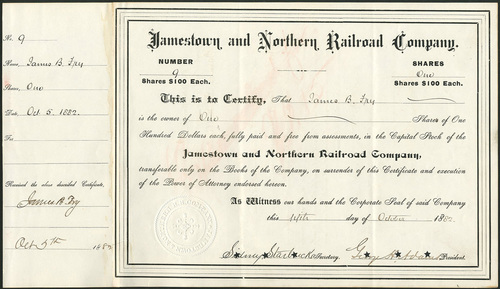 No. 9
Name James B. Fry
Shares, One
Date Oct 5. 1882.
For
Received the above described Certificate,
James B. Fry
Oct 5th 188
Jamestown and Northern Railroad Company.
NUMBER
9
Shares $100 Each.
SHARES
One
Shares $100 Each.
This is to Certify, That James B. Fry
is the owner of One Shares of One
Hundred Dollars each, fully paid and free from assessments, in the Capital Stock of the
Jamestown and Northern Railroad Company,
transferable only on the Books of the Company, on surrender of this Certificate and execution
of the Power of Attorney endorsed hereon.
As Witness our hands and the Corporate Seal of said Company
this fifth day of October 188
Sidney Starbuck Secretary. George President.